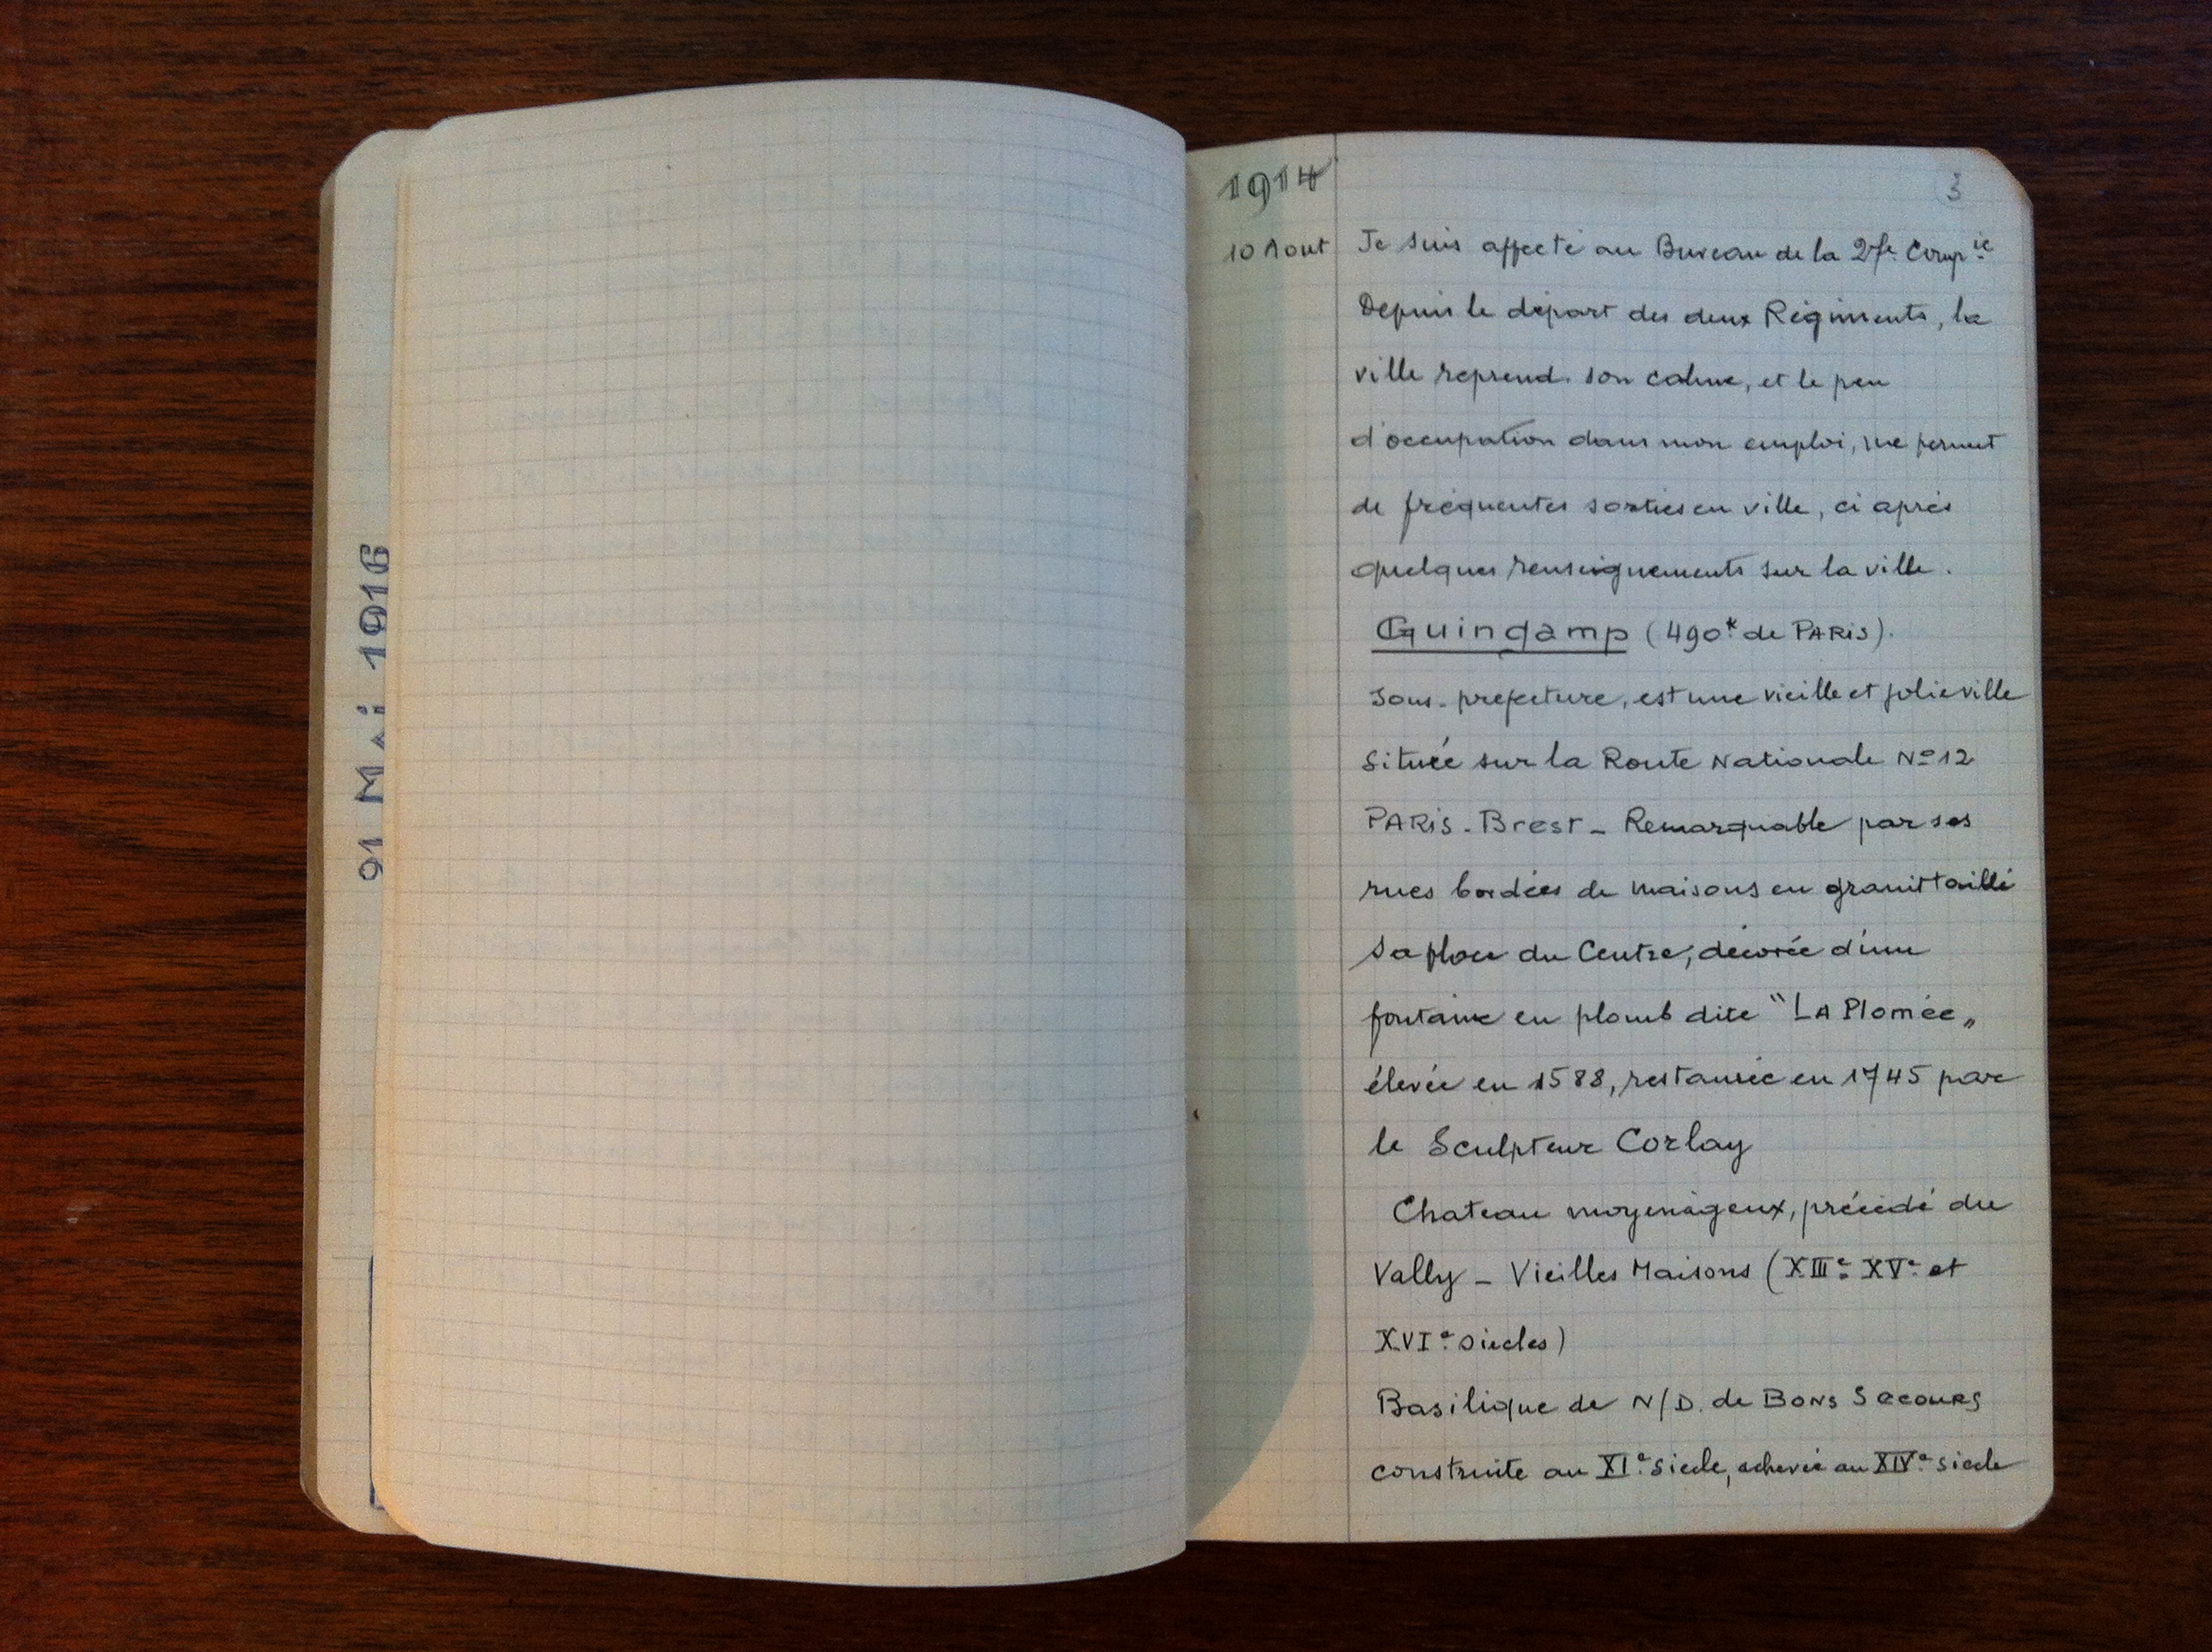 91 Mai 1916
1914
3
10 Aout Je suis affecté au Bureau de la 27e Compie
Depuis le départ des deux Régiments, la
ville reprend son calme, et le peu
d'occupation dans mon emploi, me permet
de fréquentes sorties en ville, ci après
quelques renseignements sur la ville.
Guingamp (490k de PARIS).
Sous-prefecture, est une vieille et jolie ville
située sur la Route Nationale No 12
PARIS - Brest - Remarquable par ses
rues bordées de maisons en granit taillé
Sa place du Centre, décorée d'une
fontaine en plomb dite "LA Plomée"
élevée en 1588, restaurée en 1745 par
le Sculpteur Corlay
Chateau moyenâgeux, précédé du
Vally - Vieilles Maisons (XIIIe XVe et
XVIe siècles)
Basilique de N/D. de BONS SECOURS
construite au XIe siecle, achevée au XIVe siecle